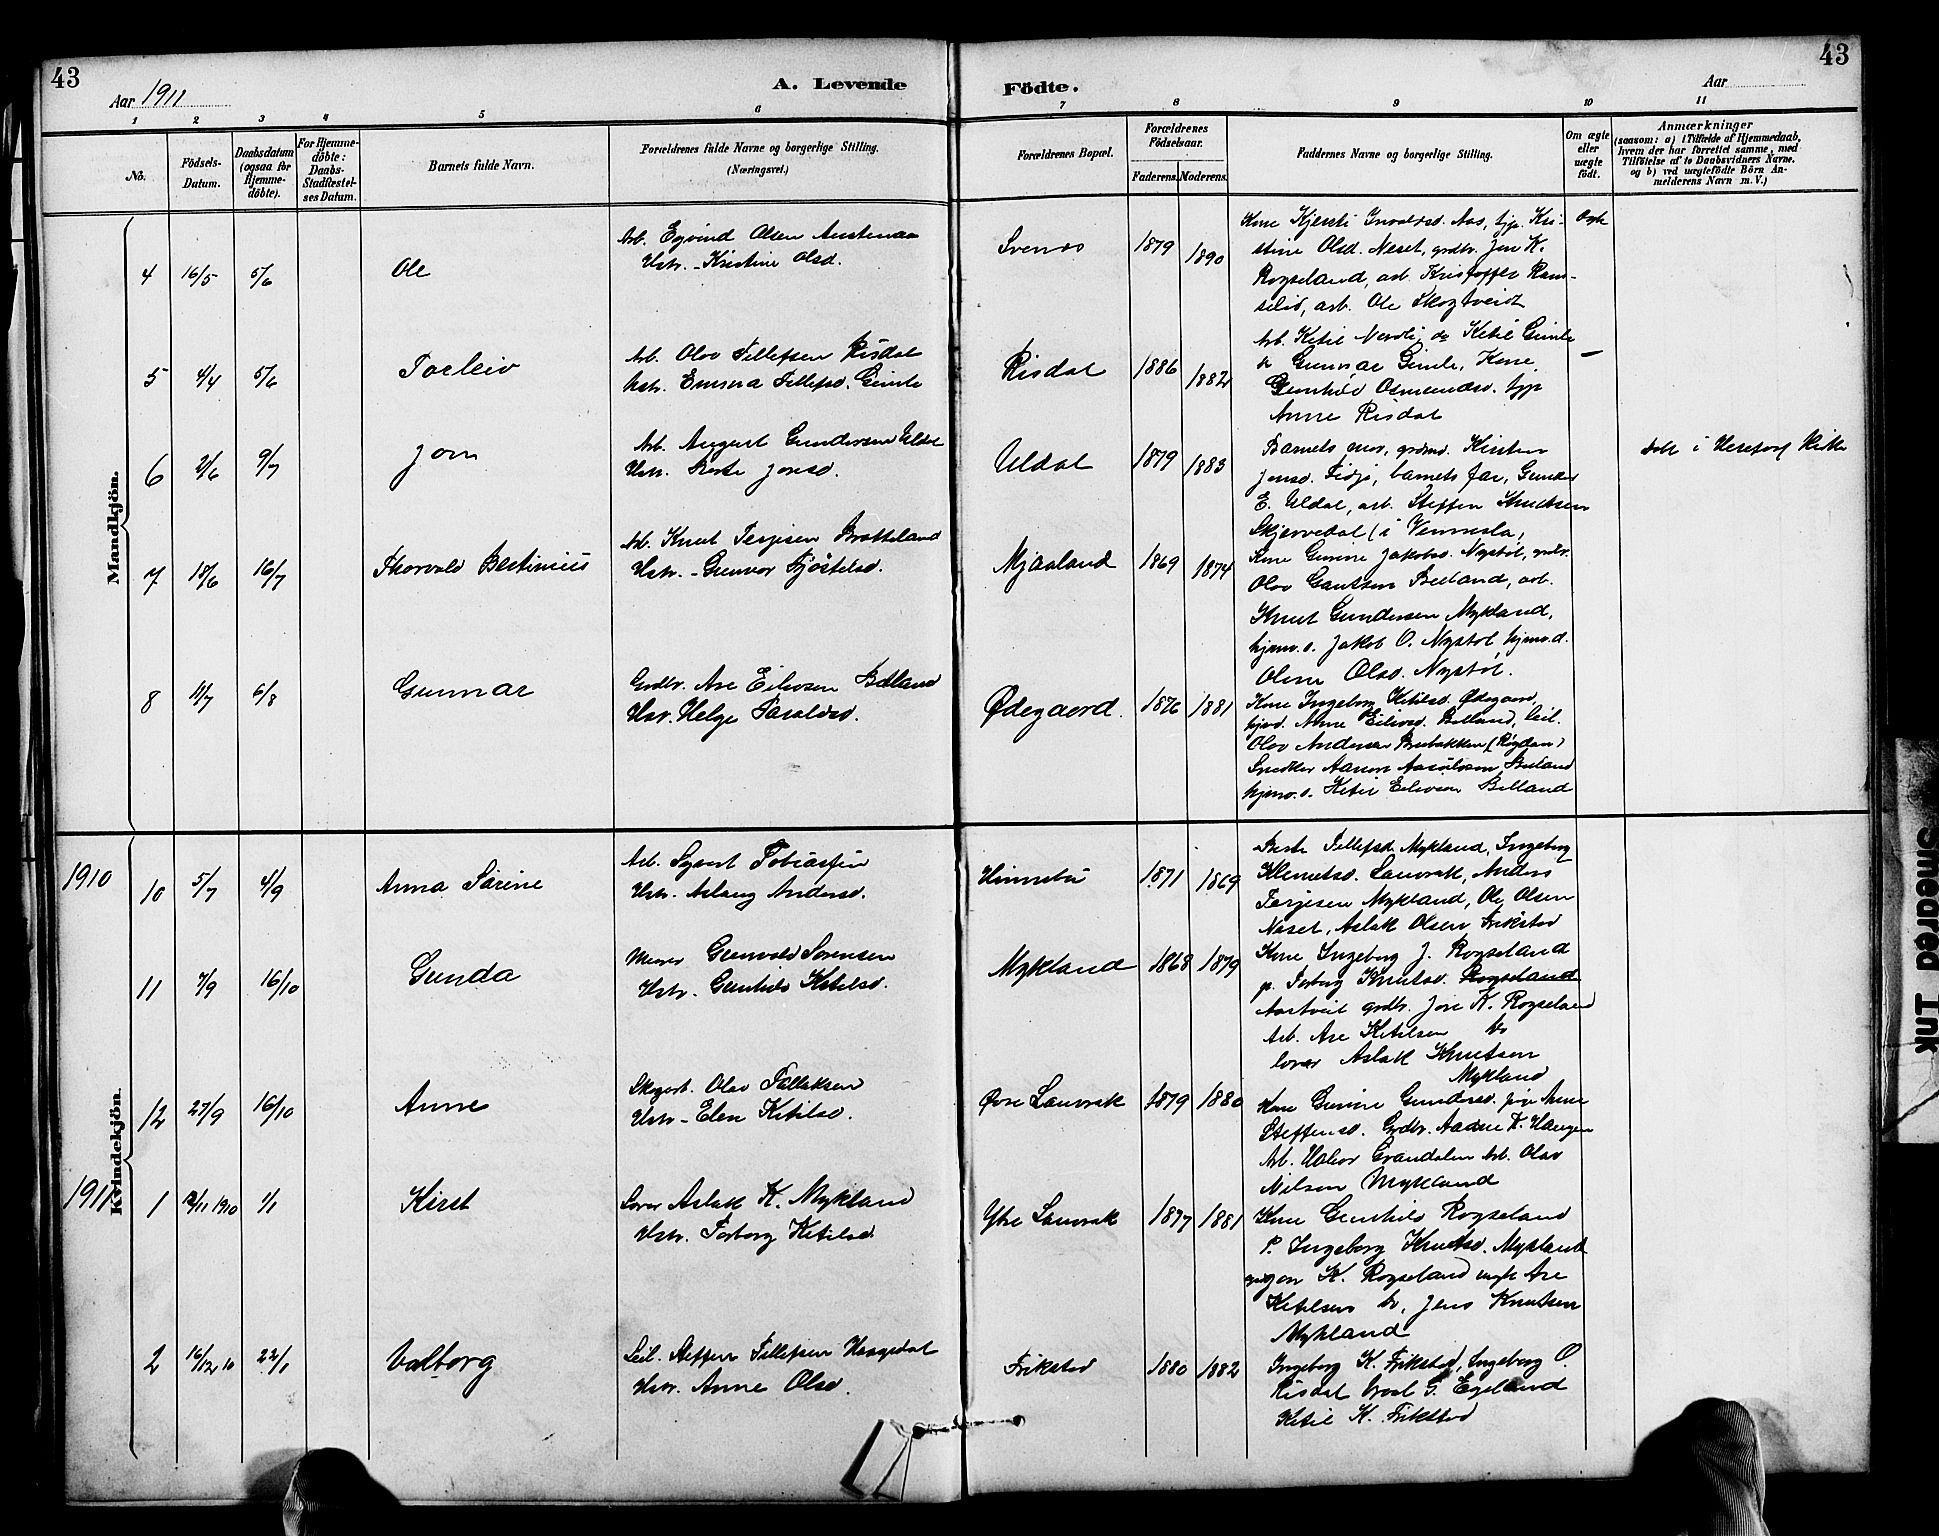 43
A. Levende
Födte.
43
Aar 1911
Aar
1 2 3 4 5 6 7 8 9 10 11
No.
Födsels-Datum.
Daabsdatum (ogsaa for Hjemme-döbte).
For Hjemme-döbte: Daabs-Stadfæstel-ses Datum.
Barnets fulde Navn.
Forældrenes fulde Navne og borgerlige Stilling. (Næringsvei.)
Forældrenes Bopæl.
Forældrenes Födselsaar.
Faderens. Moderens.
Faddernes Navne og borgerlige Stilling.
Om ægte eller uægte födt.
Anmærkninger
(saasom: a) i Tilfælde af Hjemmedaab, hvem der har forrettet samme, med Tilföielse af to Daabsvidners Navne. og b) ved uægtefödte Börn An-melderens Navn m. V.)
Mandkjön.
4 16/5 5/6 Ole
Arb. Eyvind Olsen Austenaa
Ustr. Kristine Olsd.
Svenes 1879 1890
Kone Kjersti Aas, tjp. Kri-
stine Olsd. Neset, grdbr. Jon K.
Rogseland, arb. Kristoffer Ram-
selid, arb. Ole Skogtveidt
5 4/4 5/6 Torleiv
Arb. Olav Tellefsen Risdal
Ustr. Emma Tellefsd. Gimle
Risdal 1886 1882 —
Arb. Ketil Ketil Gimle
Gunnar Gimle, Kone
Gunhild Osmundsd. tjp
Anne Risdal
6 2/6 9/7 Jon
Arb. August Gundersen Uldal
Ustr. Jonsd.
Uldal 1879 1883
Barnets mor, grdmd. Kirsten
Jonsd. Fidje, barnets far, Gunder
E. Uldal, arb. Steffen Knudsen
Skjervedal (i Vennesla)
Døbt i Herefoss Kirke
7 18/6 16/7 Thorvald Bertinius
Arb. Knut Terjesen Bratteland
Ustr. Gunvor
Mjaaland 1869 1874
Kone Gunne Jakobsd. Nystøl, grdbr.
Olav Gautsen Beiland, arb.
Knut Gundersen Mykland,
hjmv. s. Jakob O. Nystøl hjmv. d.
Olene Olsd. Nystøl.
8 4/7 6/8 Gunnar
Grdbr. Are Eilevsen Belland
Ustr. Helge
Ødegaard. 1876 1881
Kone Ingeborg Ketilsd. Ødegaard,
hjmd. Anne Eilevsd. Belland, leil.
Olav Andersen Brubakken (Rigdan)
Snedker Aanon Beiland
hjmv. s. Ketil Eilevsen Belland
Kvindekjön.
1910
10 5/7 4/9 Anna Sørine
Arb. Syvert Tobiassen
Ustr. Aslaug Andersd.
1871 1869
Tellefsd. Mykland, Ingeborg
Klemetsd. Lauvrak, Anders
Terjesen Mykland, Ole Olsen
Neset, Aslak Olsen Frikstad
11 7/9 16/10 Gunda
Murer Gunvald Sørensen
Ustr. Gunhild Ketilsd.
Mykland 1868 1879
Kone Ingeborg J. Rogseland
p. Torborg Knutsd. Rogseland
Aastveit grdbr. Jon K. Rogseland
Arb. Are Ketilsen
Aslak Knutsen
Mykland
12 27/9 16/10 Anne
Skogarb. Olav Tallaksen
Ustr. Elen Ketilsd.
Øvre Lauvrak 1879 1880
Kone Gunne Gundersd. pige Anne
Steffensd. Grdbr. Aadne T. Haugen
Arb. Halvor Grandalen Arb. Olav
Nilsen Mykland
1911
1 12/11 1910 1/1 Kirst
Aslak K. Mykland
Ustr. Torborg Ketilsd.
Ytre Lauvrak 1877 1881
Kone Gunhild Rogseland
P. Ingeborg Knutsd. Mykland
Jon K. Rogseland ungk Are
Ketilsen Jens Knutsen
Mykland
2 16/12 10 22/1 Valborg
Leil. Steffen Tellefsen Haugedal
Ustr. Anne Olsd.
Frikstad 1880 1882
Ingeborg K. Frikstad, Ingeborg O.
Risdal G. Egeland
Ketil K. Frikstad
Smeared Ink